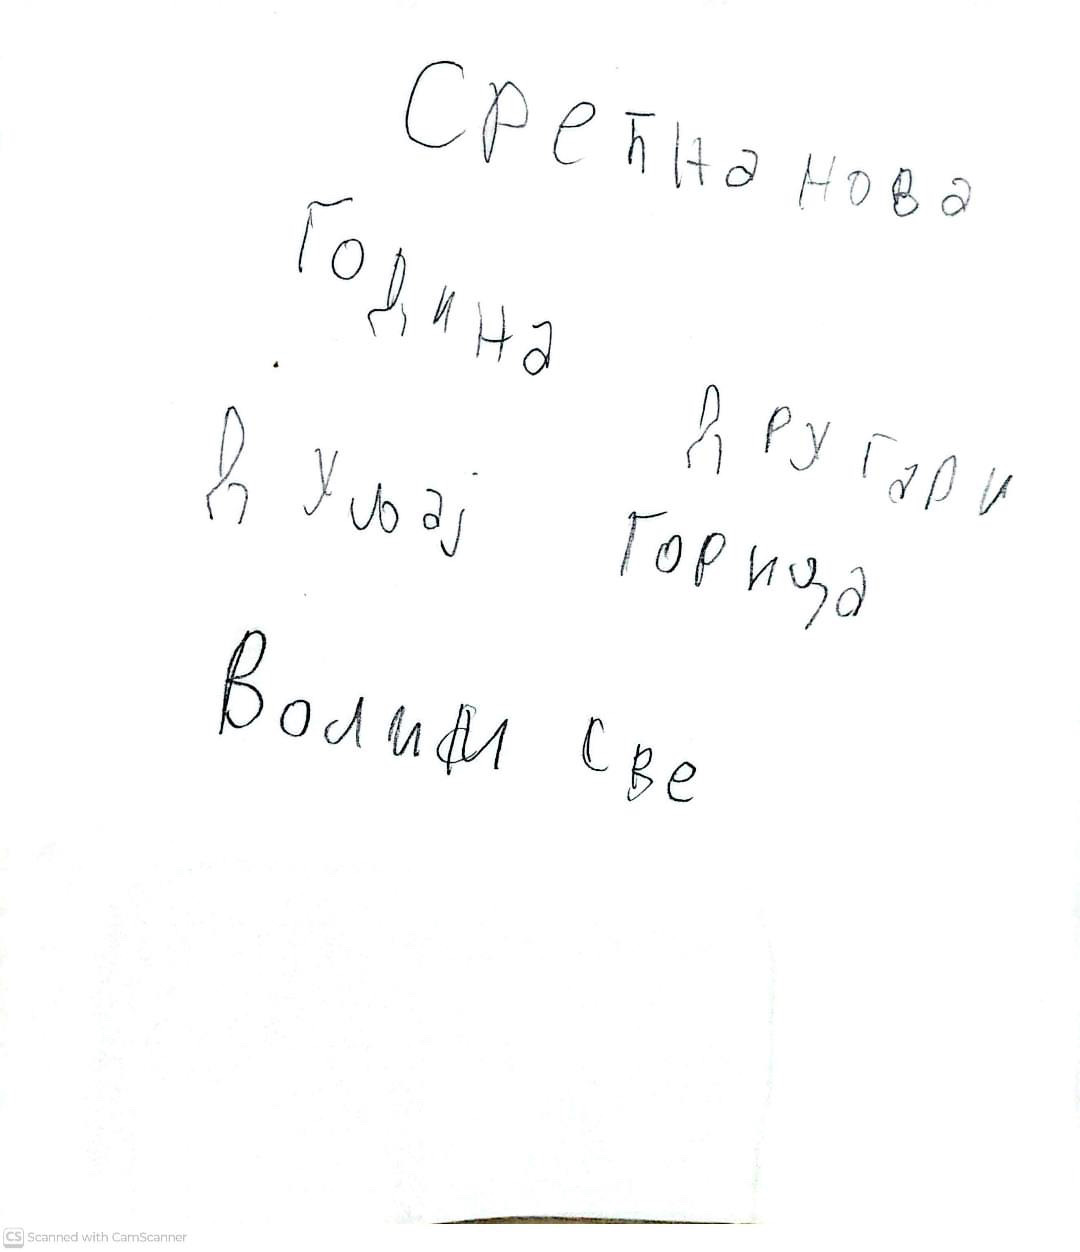 Срећна нова
Година
Другари
Дуљај Горица
Волим све
CS Scanned with CamScanner